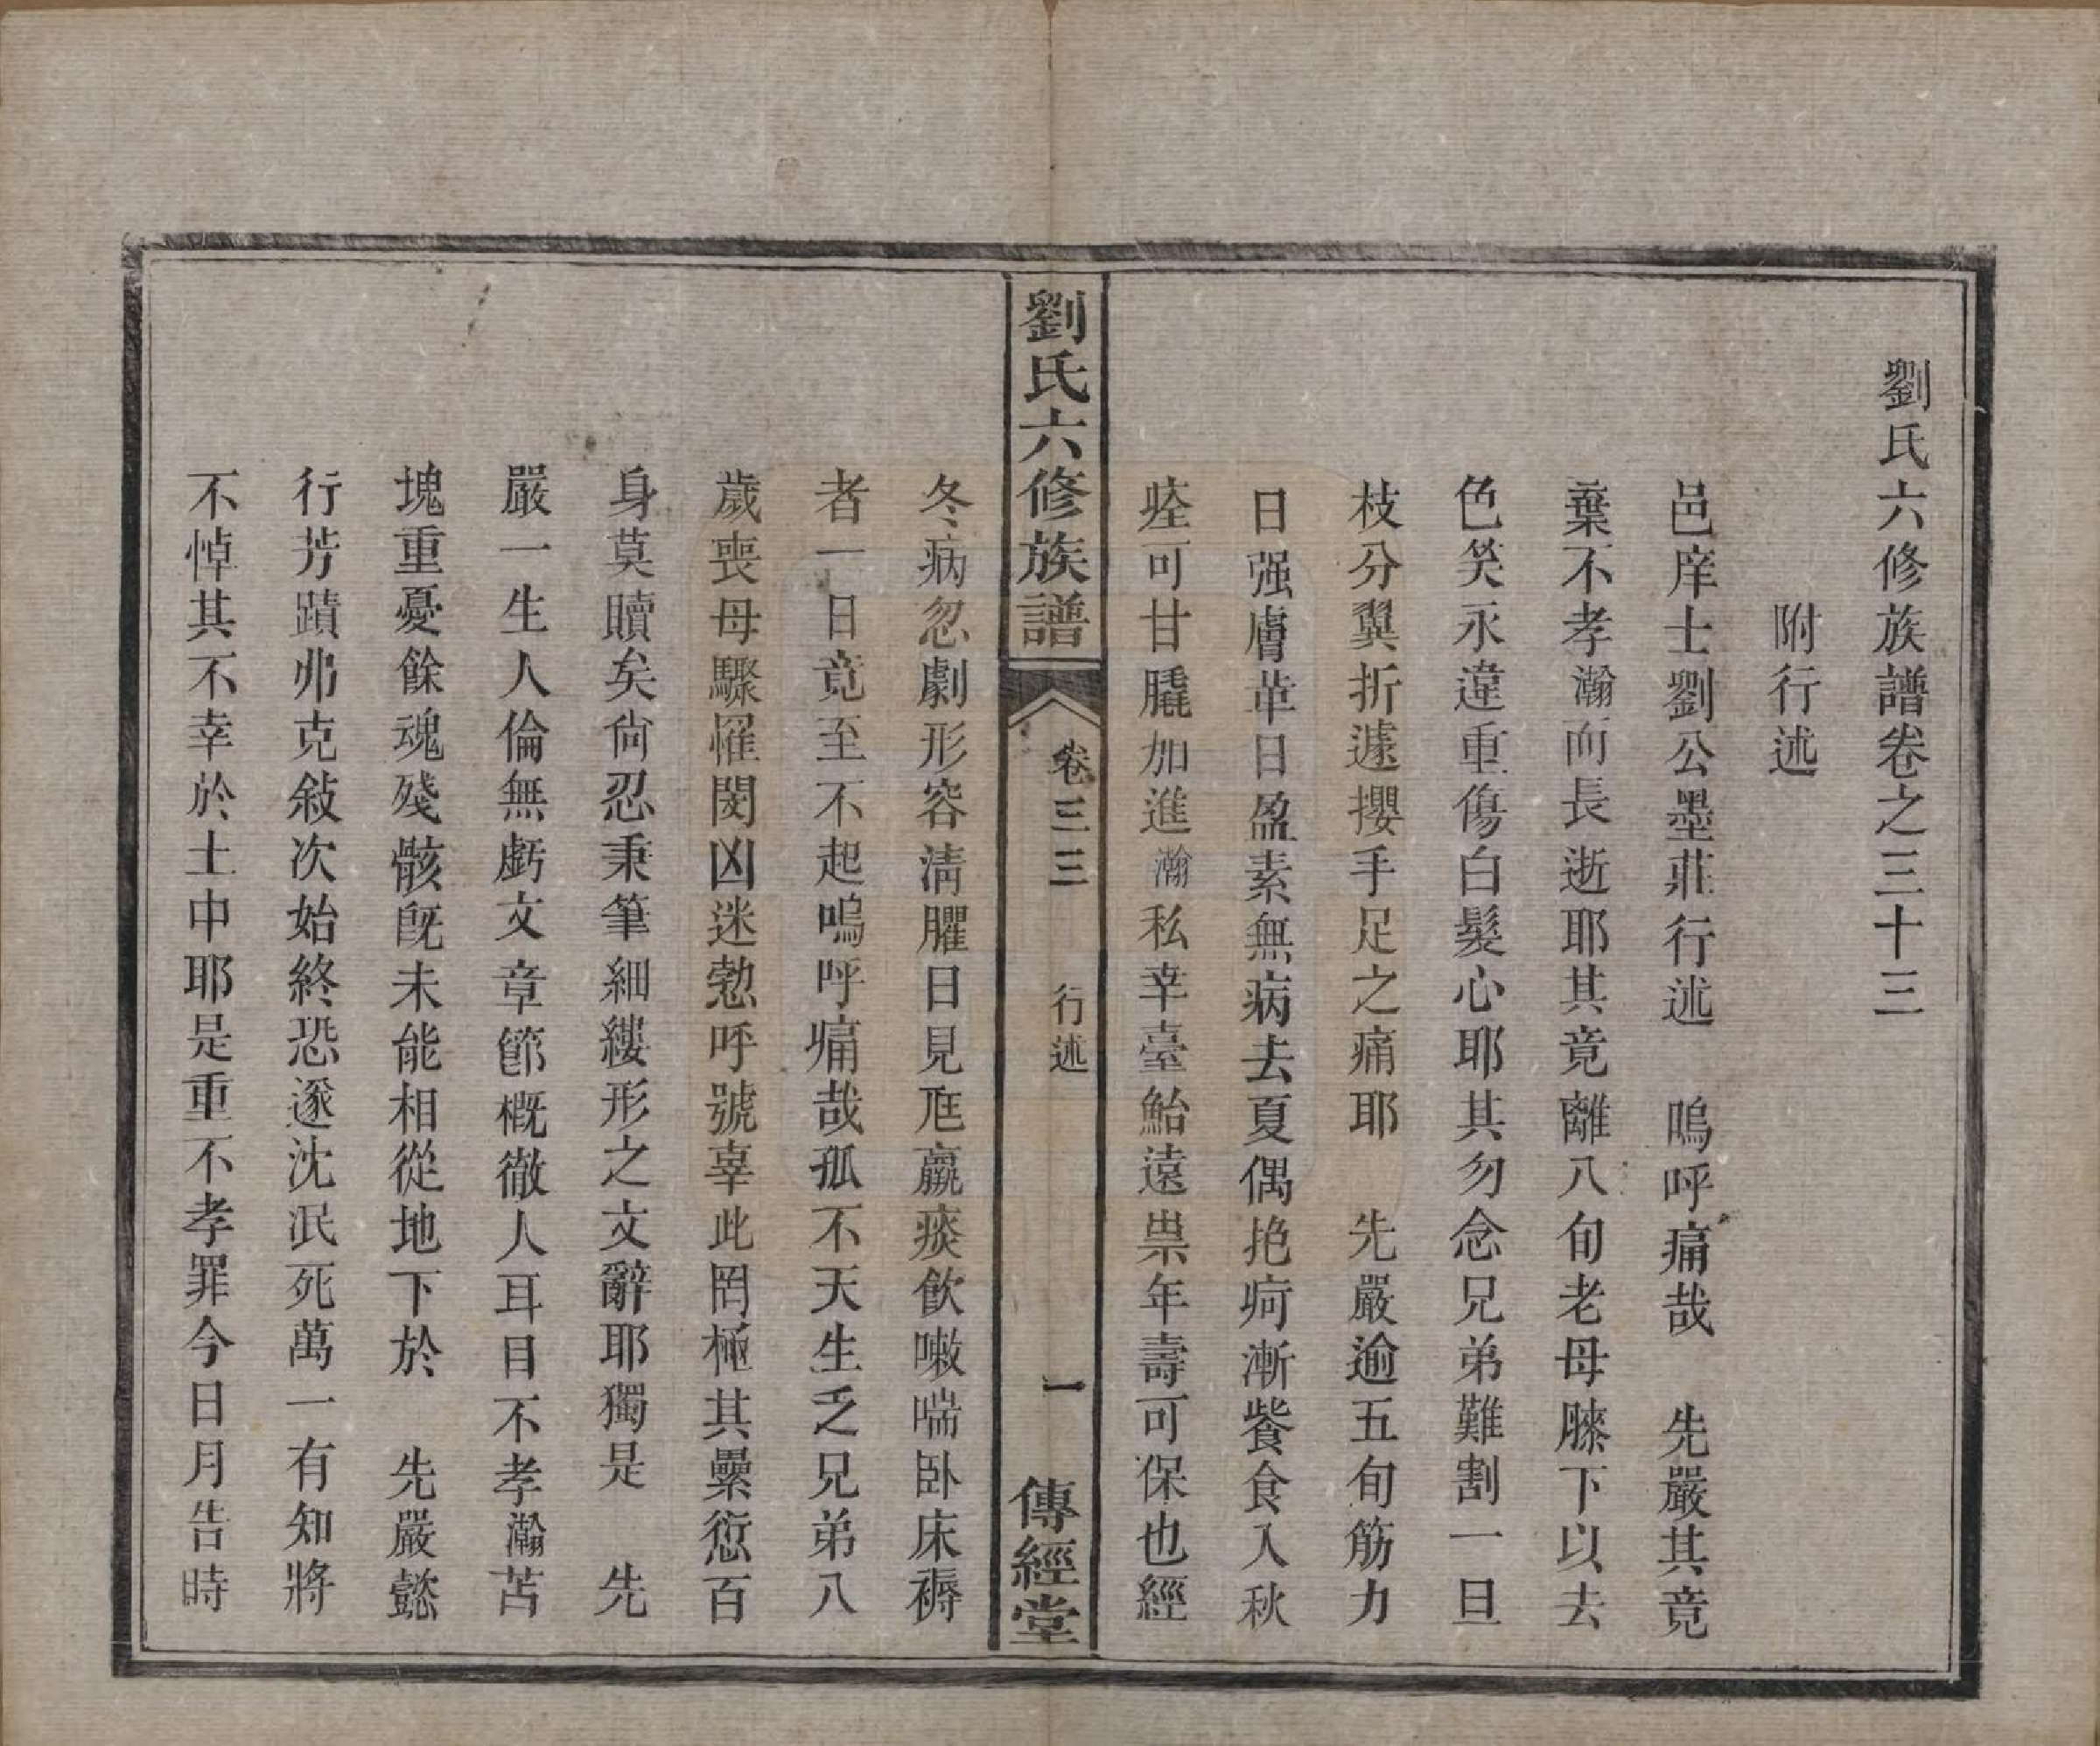 劉氏六修族譜卷之三十三
附行述
邑庠士劉公墨莊行述　嗚呼痛哉　先嚴其竟
棄不孝瀚而長逝耶其竟離八旬老母膝下以去
色笑永違重傷白髮心耶其勿念兄弟難割一旦
枝分翼折遽攖手足之痛耶　先嚴逾五旬筋力
日强膚革日盈素無病去夏偶抱疴漸餐食入秋
痊可甘脆加進瀚私幸臺鮐遠祟年壽可保也經
劉氏六修族譜　卷三三　行述　一　傳經堂
冬病忽劇形容淸臞日見尫羸痰飲嗽喘卧床褥
者一日竟至不起嗚呼痛哉孤不天生乏兄弟八
歲喪母驟罹閔凶迷懃呼號辜此罔極其纍愆百
身莫贖矣尙忍秉筆細縷形之文辭耶獨是　先
嚴一生人倫無虧文章節槪徹人耳目不孝瀚苫
塊重憂餘魂殘骸旣未能相從地下於　先嚴懿
行芳蹟弗克敍次始終恐遂沈泯死萬一有知將
不悼其不幸於土中耶是重不孝罪今日月告時